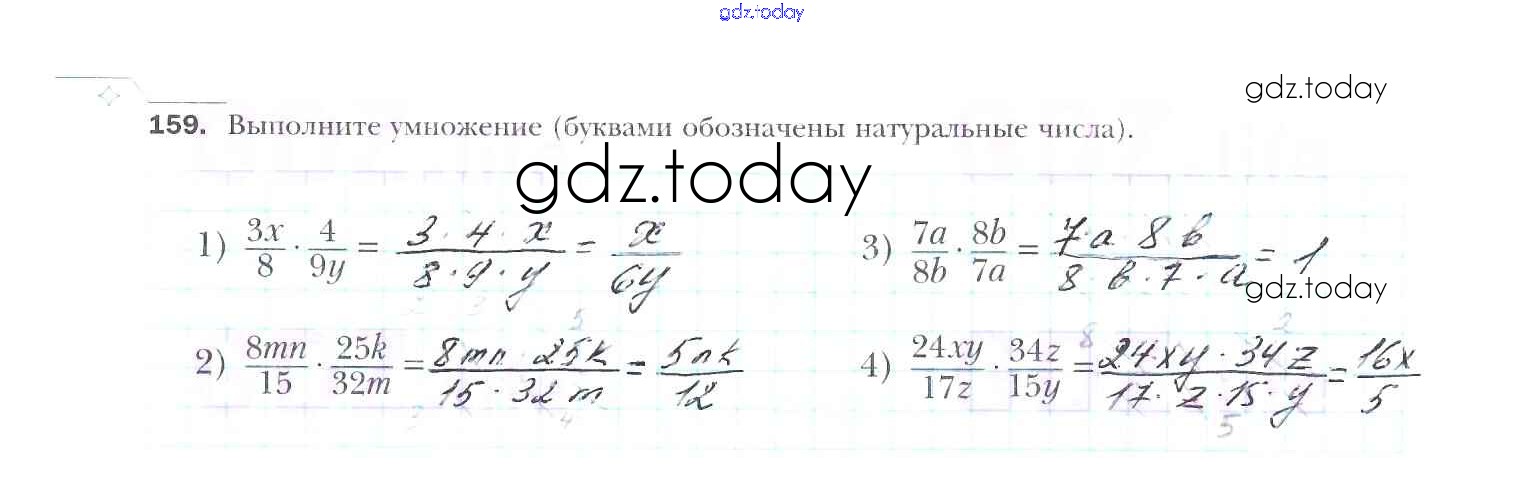 gdz.today
gdz.today
159. Выполните умножение (буквами обозначены натуральные числа).
gdz.today
1) 3x/8 · 4/9y = 3 · 4 · x / 8 · 9 · y = x/6y
3) 7a/8b · 8b/7a = 7 · a 8 b / 8 b · 7 · a = 1
gdz.today
2) 8mn/15 · 25k/32m = 8mn · 25k / 15 · 32 m = 5nk/12
4) 24xy/17z · 34z/15y = 24xy · 34z / 17 · z · 15 · y = 16x/5